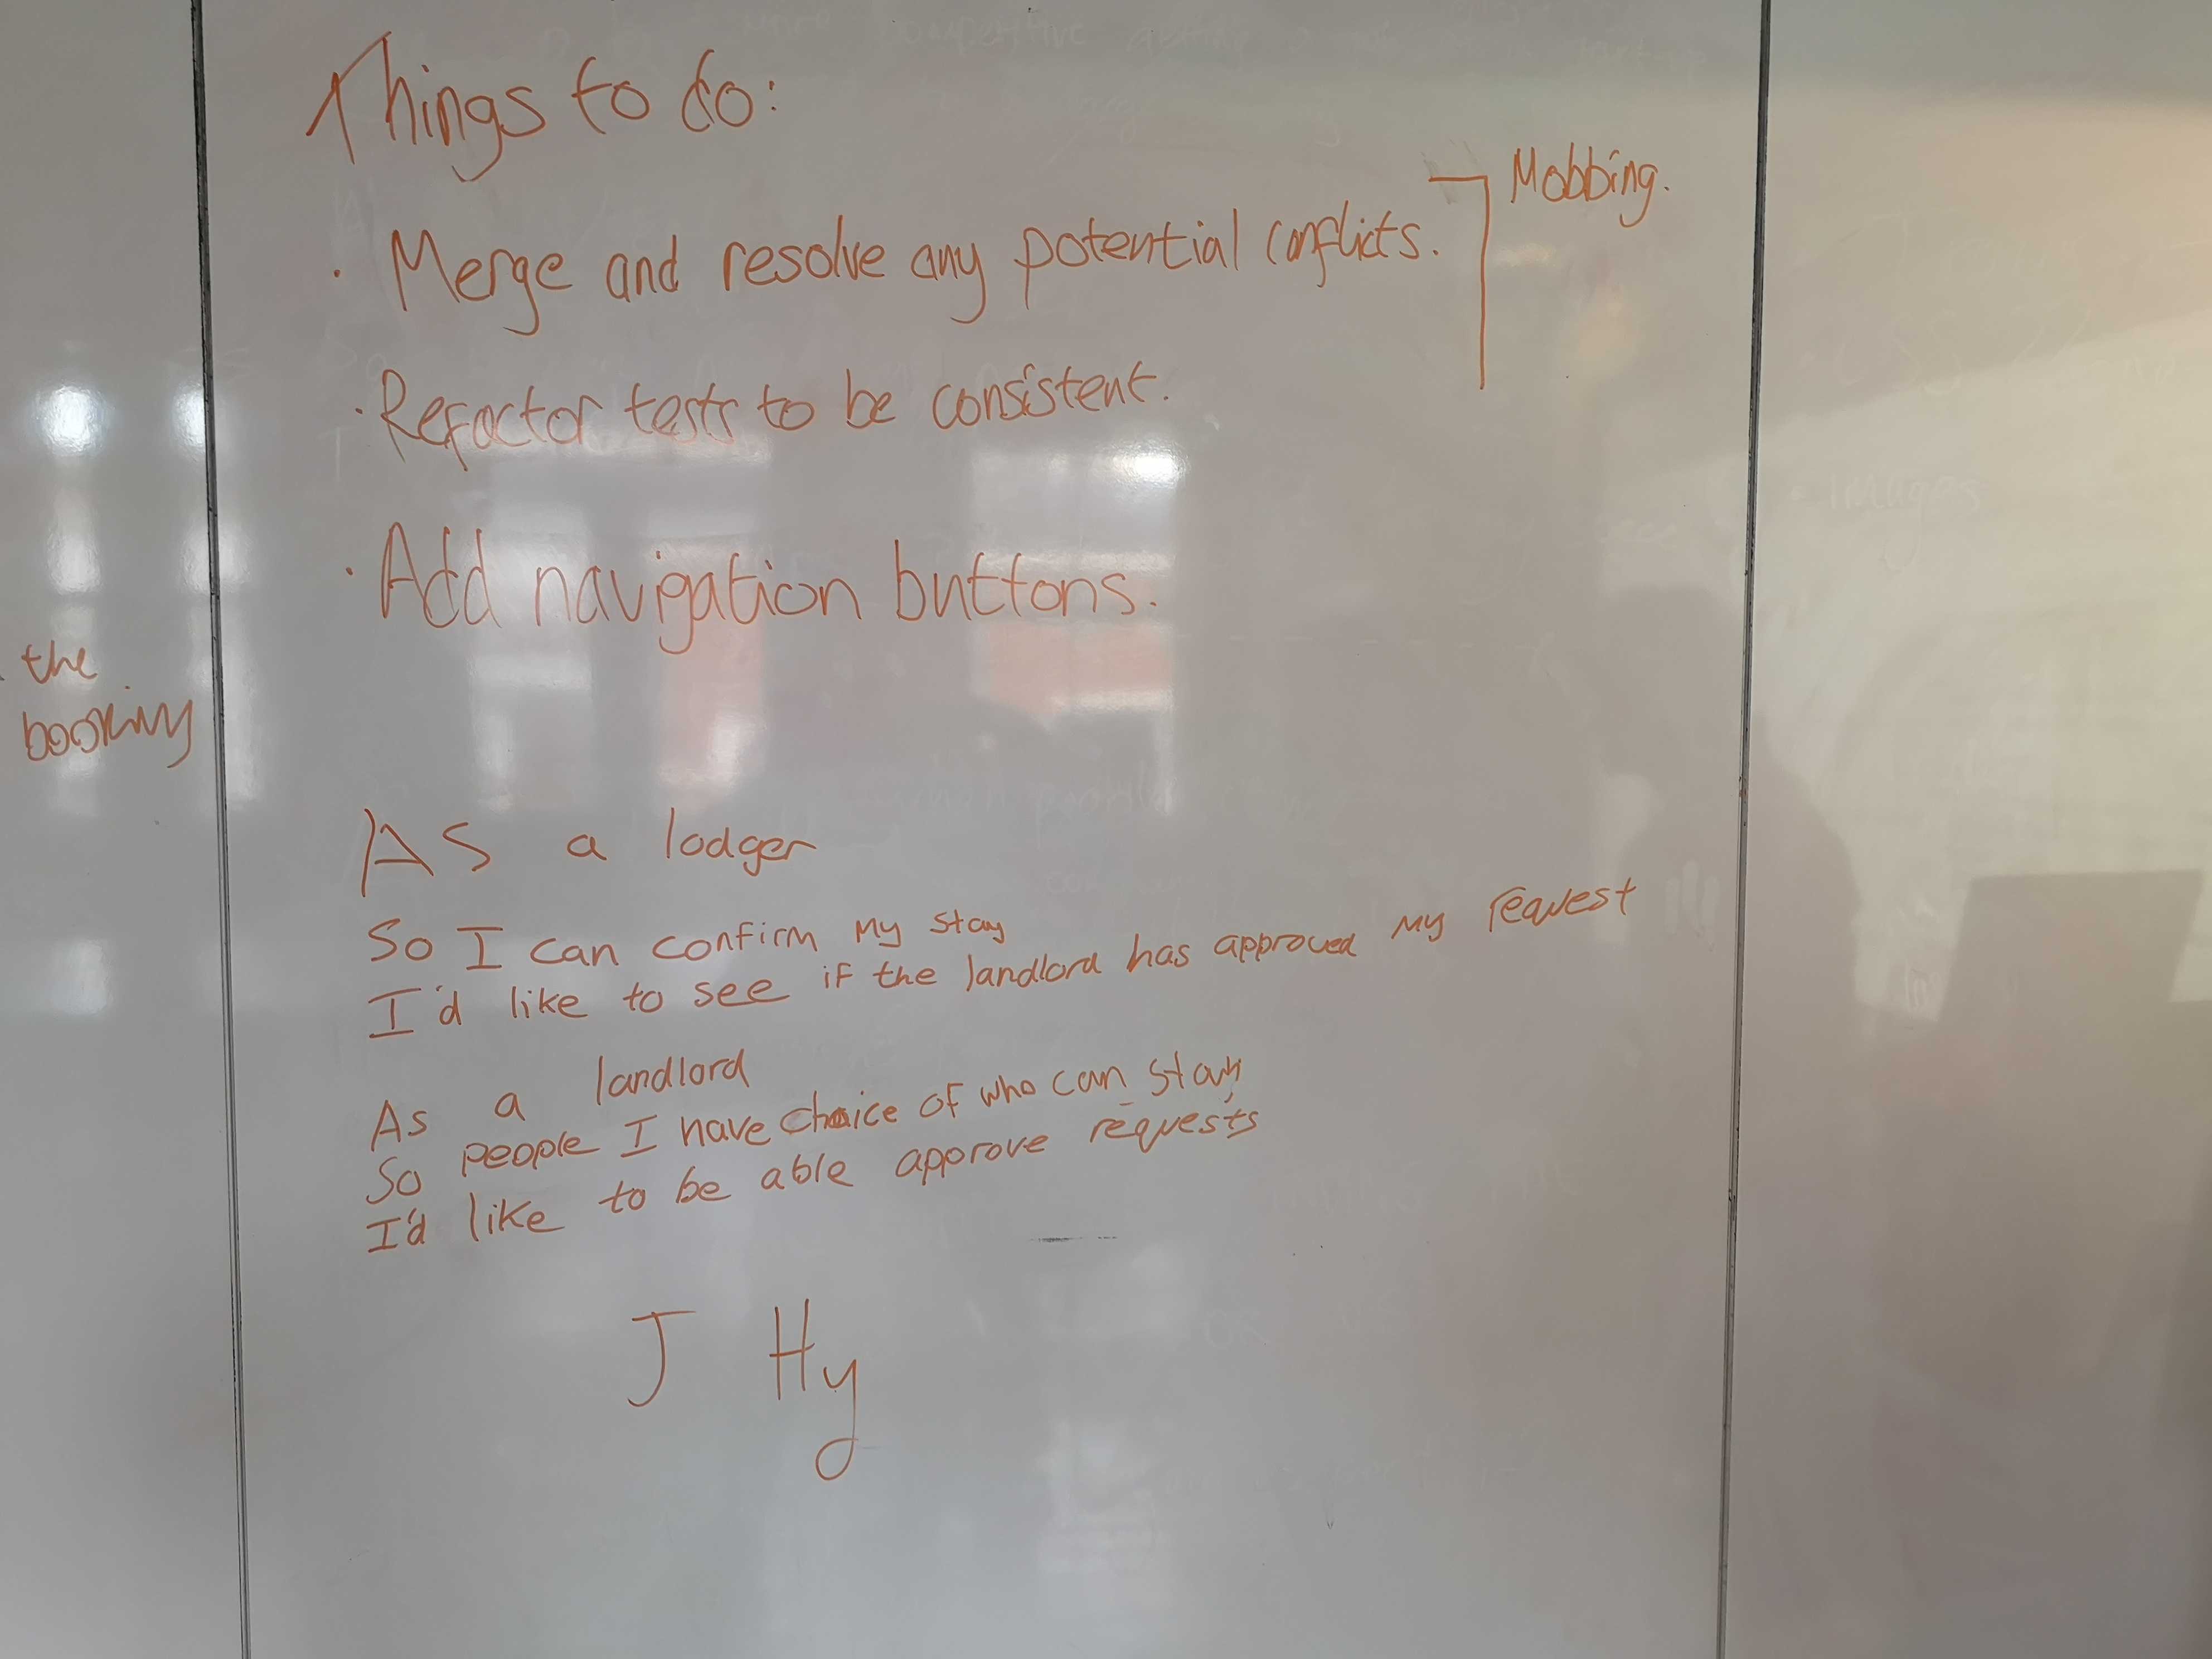 Things to do:
Mobbing.
· Merge and resolve any potential conflicts.
· Refactor tests to be consistent.
· Add navigation buttons.
the
booking
As a lodger
So I can confirm my stay
I'd like to see if the landlord has approved my request
As a landlord
So people I have choice of who can stay
I'd like to be able approve requests
J Hy
images